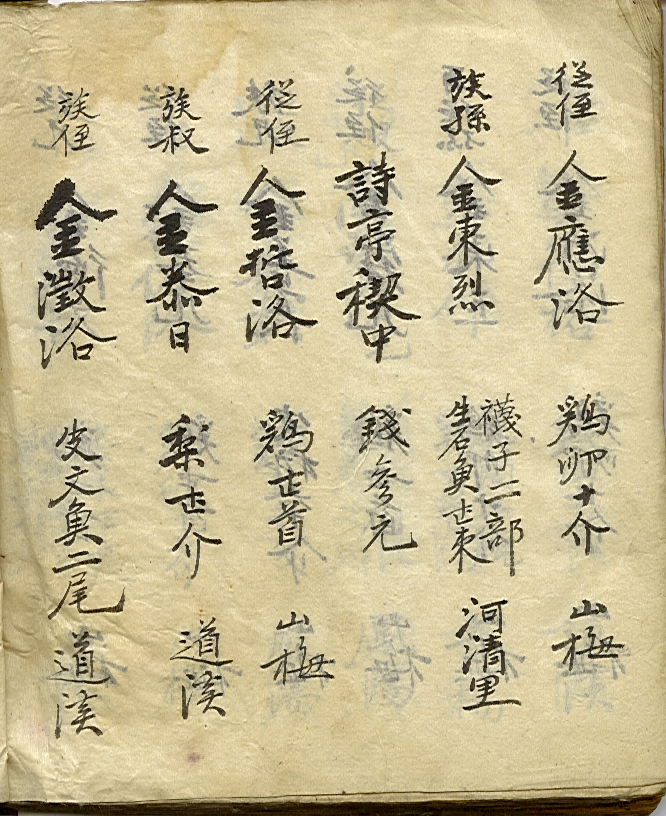 從侄 金應洛 鷄卵十介 山梅
族孫 金東烈 襪子二部 生石魚壱束 河清里
詩亭稧中 錢參元
從侄 金哲洛 鷄壱首 山梅
族叔 金泰日 梨壱介 道渓
族侄 金澂洛 皮文魚二尾 道渓